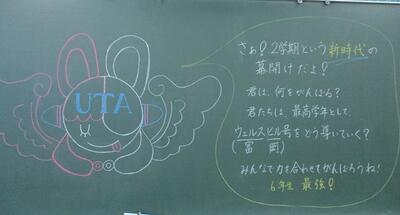 UTA
さぁ!2学期という新時代の
幕開けだよ!
君は、何をがんばる?
君たちは、最高学年として、
ウェルスヒル号をどう導いていく?
(富 岡)
みんなで力を合わせてがんばろうね!
6年生 最強!